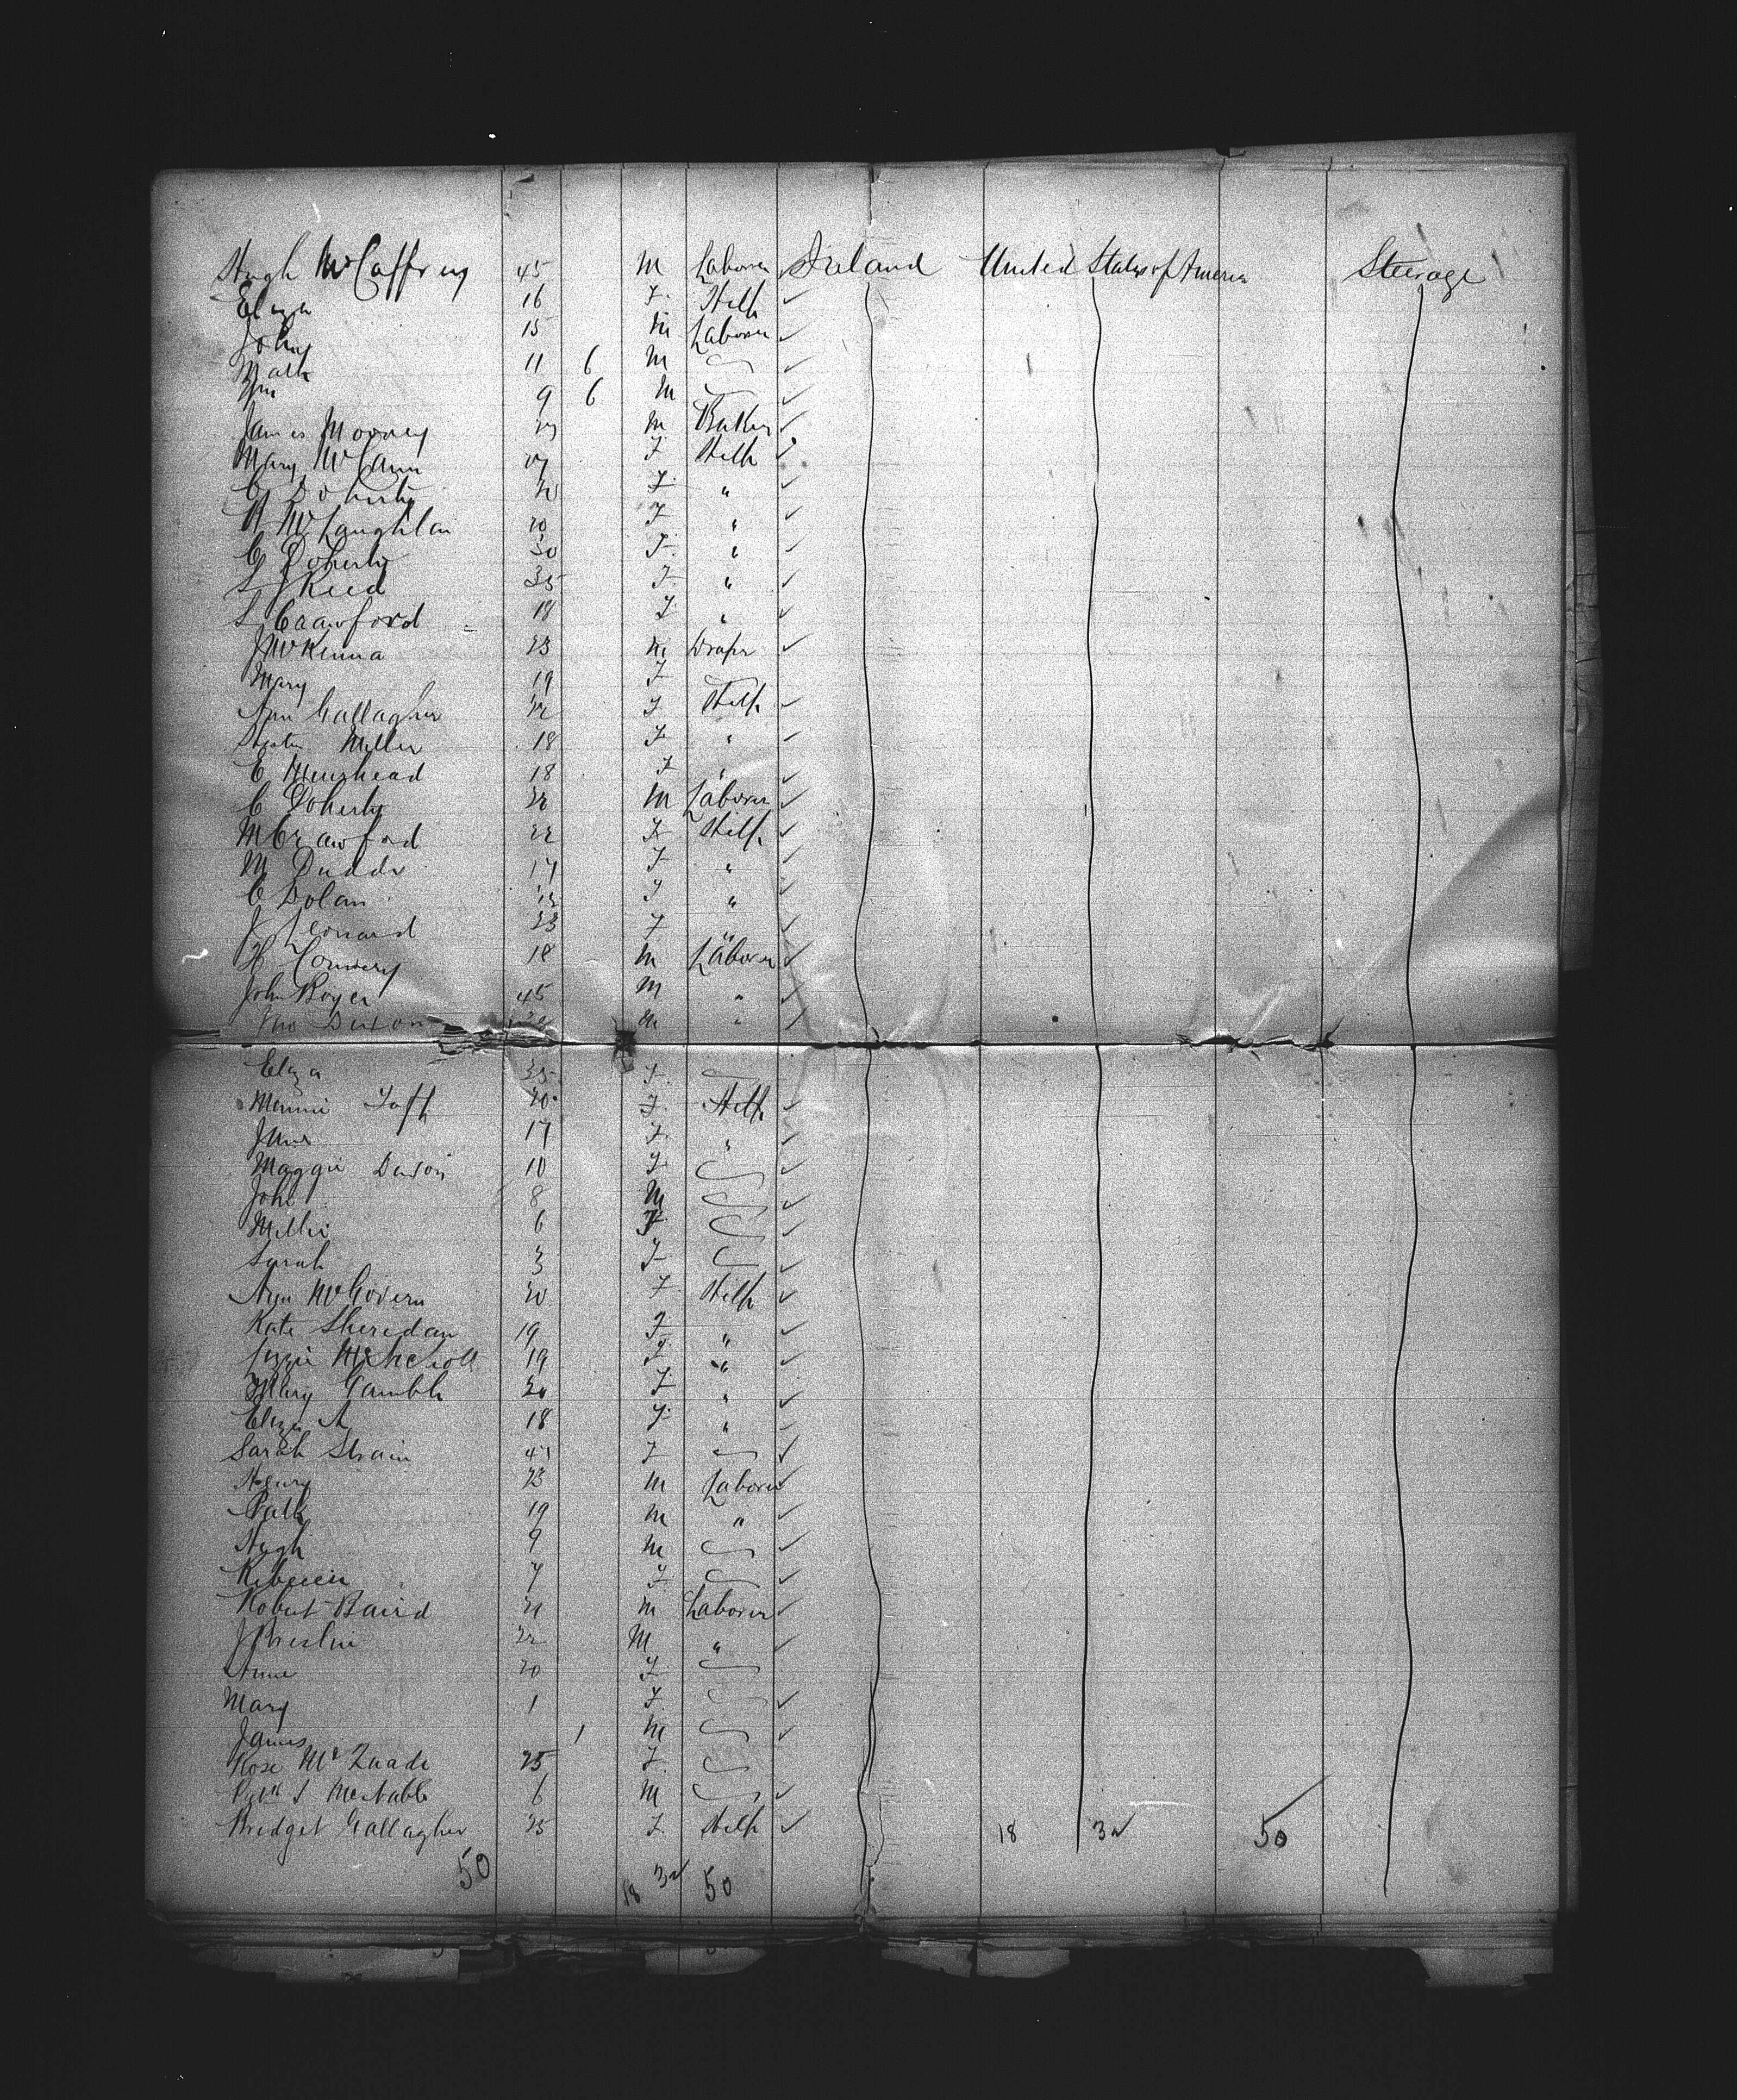 Hugh McCaffrey 45 M Laborer Ireland United States of America Steerage
Eliza 16 F. Help
John 15 M Laborer
11 6 M
Wm 9 6 M
James Mooney M Baker
Mary McCann F Help
C Doherty 20 F. "
McLaughlin 20 F "
C Doherty 30 F. "
S J Reed 35 F "
S Crawford 18 F "
J McKenna 23 M Drapr
Mary 19 F
Ann Gallagher 22 F Help
Miller 18 F "
E Muirhead 18 F "
C Doherty M Laborer
M Crawford 22 F Help
M Duddy 17 F "
C Dolan F "
J Leonard 23 F "
Conwery 18 M Laborer
John Boyer 45 M "
M "
Eliza 35 F.
Taft 20 F. Help
Jane 17 F. "
Maggie 10 F.
John 8 M
Millie 6 F.
Sarah 3 F
Ann McGovern 20 F Help
Kate Sheridan 19 F "
Lizzie 19 F "
Mary Gamble 20 F "
Eliza A 18 F "
Sarah Strain F
Henry 23 M Laborer
Patk 19 M "
Hugh 9 M
Rebecca 7 F
Robert Baird 21 M Laborer
J Breslin 22 M "
Anne 20 F
Mary 1 F.
James 1 M
Rose McQuade 25 F.
McNabb 6 M
Bridget Gallagher 25 F Help 18 32 50
50 18 32 50